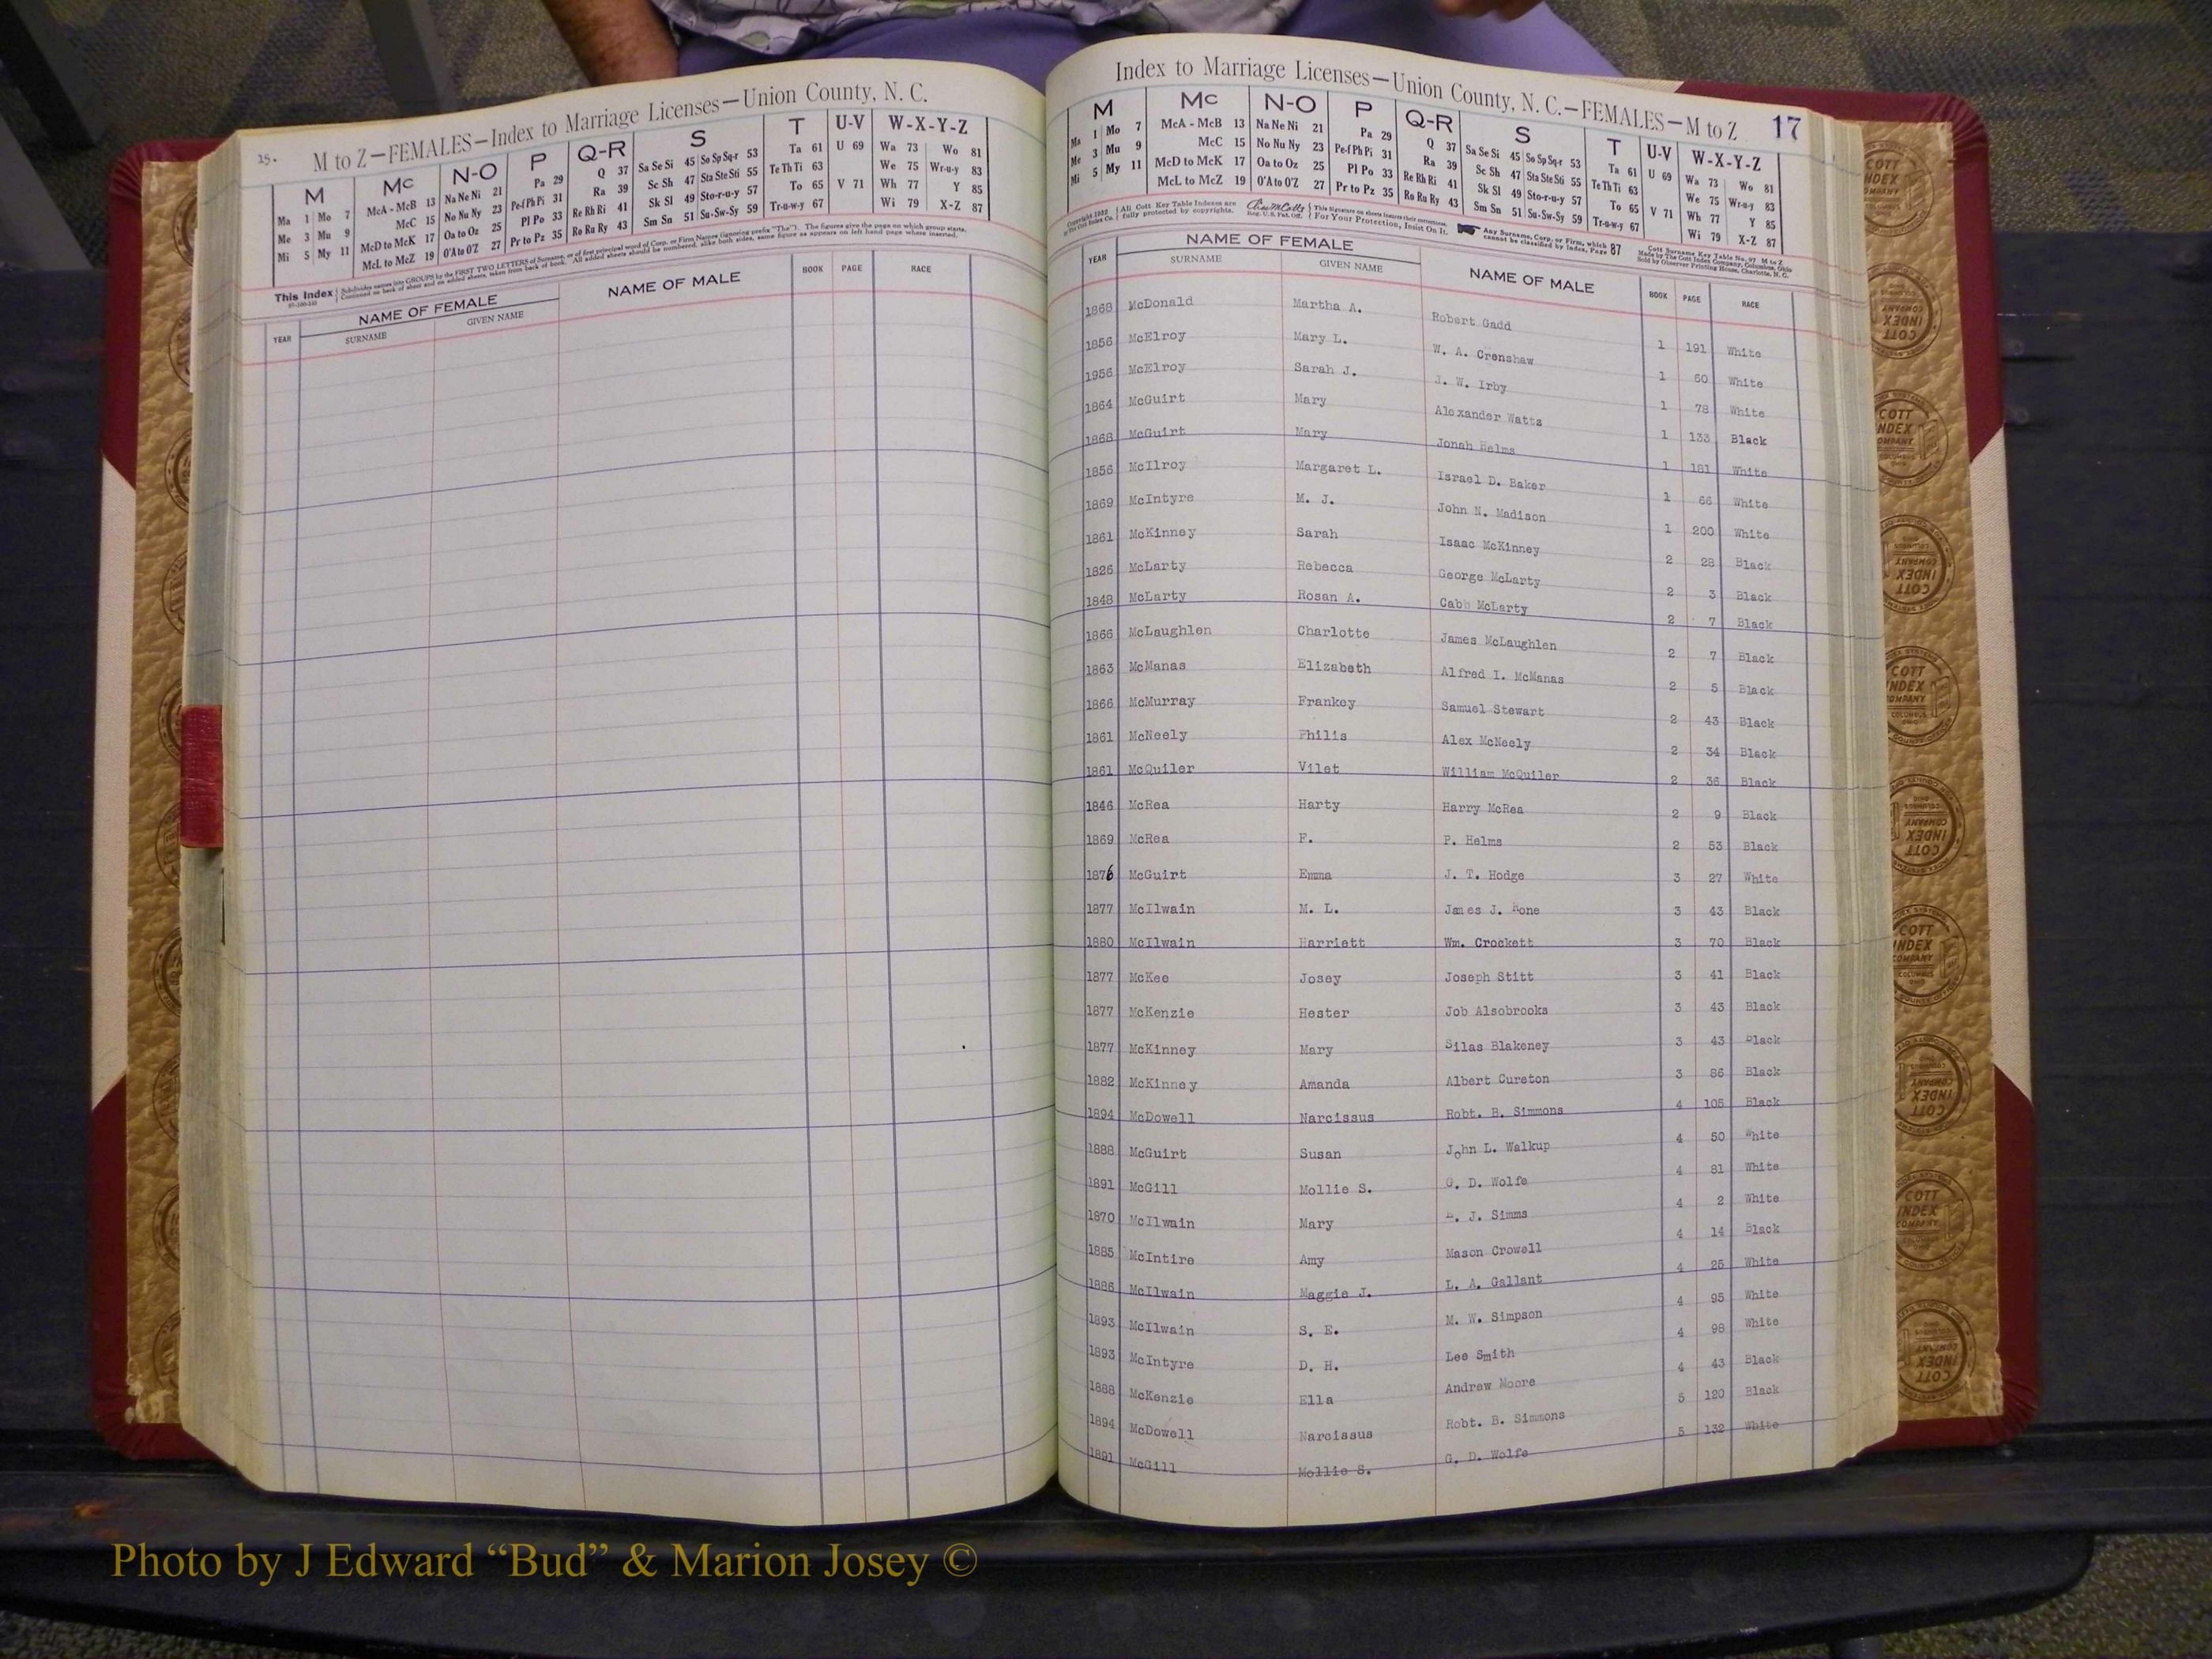 15.
M to Z—FEMALES—Index to Marriage Licenses—Union County, N. C.
M Mc N-O P Q-R S T U-V W-X-Y-Z
Ma 1 Mo 7 McA - McB 13 Na Ne Ni 21 Pa 29 Q 37 Sa Se Si 45 So Sp Sq-r 53 Ta 61 U 69 Wa 73 Wo 81
Me 3 Mu 9 McC 15 No Nu Ny 23 Pe-f Ph Pi 31 Ra 39 Sc Sh 47 Sta Ste Sti 55 Te Th Ti 63 We 75 Wr-u-y 83
Mi 5 My 11 McD to McK 17 Oa to Oz 25 Pl Po 33 Re Rh Ri 41 Sk Sl 49 Sto-r-u-y 57 To 65 V 71 Wh 77 Y 85
McL to McZ 19 O'A to O'Z 27 Pr to Pz 35 Ro Ru Ry 43 Sm Sn 51 Su-Sw-Sy 59 Tr-u-w-y 67 Wi 79 X-Z 87
This Index Subdivides names into GROUPS by the FIRST TWO LETTERS of Surname, or of first principal word of Corp. or Firm Names (ignoring prefix "The"). The figures give the page on which group starts.
Continued on back of sheet and on added sheets, taken from back of book. All added sheets should be numbered, alike both sides, same figure as appears on left hand page where inserted.
YEAR NAME OF FEMALE NAME OF MALE BOOK PAGE RACE
SURNAME GIVEN NAME
Index to Marriage Licenses—Union County, N. C.—FEMALES—M to Z 17
M Mc N-O P Q-R S T U-V W-X-Y-Z
Ma 1 Mo 7 McA - McB 13 Na Ne Ni 21 Pa 29 Q 37 Sa Se Si 45 So Sp Sq-r 53 Ta 61 U 69 Wa 73 Wo 81
Me 3 Mu 9 McC 15 No Nu Ny 23 Pe-f Ph Pi 31 Ra 39 Sc Sh 47 Sta Ste Sti 55 Te Th Ti 63 We 75 Wr-u-y 83
Mi 5 My 11 McD to McK 17 Oa to Oz 25 Pl Po 33 Re Rh Ri 41 Sk Sl 49 Sto-r-u-y 57 To 65 V 71 Wh 77 Y 85
McL to McZ 19 O'A to O'Z 27 Pr to Pz 35 Ro Ru Ry 43 Sm Sn 51 Su-Sw-Sy 59 Tr-u-w-y 67 Wi 79 X-Z 87
All Cott Key Table Indexes are fully protected by copyrights. For Your Protection, Insist On It. Any Surname, Corp. or Firm, which cannot be classified by Index, Page 87
Made by The Cott Index Company, Columbus, Ohio
Sold by Observer Printing House, Charlotte, N. C.
YEAR NAME OF FEMALE NAME OF MALE BOOK PAGE RACE
SURNAME GIVEN NAME
1868 McDonald Martha A. Robert Gadd 1 191 White
1856 McElroy Mary L. W. A. Crenshaw 1 60 White
1956 McElroy Sarah J. J. W. Irby 1 78 White
1864 McGuirt Mary Alexander Watts 1 133 Black
1868 McGuirt Mary Jonah Helms 1 181 White
1856 McIlroy Margaret L. Israel D. Baker 1 66 White
1869 McIntyre M. J. John N. Madison 1 200 White
1861 McKinney Sarah Isaac McKinney 2 28 Black
1826 McLarty Rebecca George McLarty 2 3 Black
1848 McLarty Rosan A. Cabb McLarty 2 7 Black
1866 McLaughlen Charlotte James McLaughlen 2 7 Black
1863 McManas Elizabeth Alfred I. McManas 2 5 Black
1866 McMurray Frankey Samuel Stewart 2 43 Black
1861 McNeely Philis Alex McNeely 2 34 Black
1861 McQuiler Vilet William McQuiler 2 36 Black
1846 McRea Harty Harry McRea 2 9 Black
1869 McRea F. P. Helms 2 53 Black
1876 McGuirt Emma J. T. Hodge 3 27 White
1877 McIlwain M. L. James J. Hone 3 43 Black
1880 McIlwain Harriett Wm. Crockett 3 70 Black
1877 McKee Josey Joseph Stitt 3 41 Black
1877 McKenzie Hester Job Alsobrooks 3 43 Black
1877 McKinney Mary Silas Blakeney 3 43 Black
1882 McKinney Amanda Albert Cureton 3 86 Black
1894 McDowell Narcissus Robt. B. Simmons 4 105 Black
1888 McGuirt Susan John L. Walkup 4 50 White
1891 McGill Mollie S. G. D. Wolfe 4 81 White
1870 McIlwain Mary J. Simms 4 2 White
1885 McIntire Amy Mason Crowell 4 14 Black
1886 McIlwain Maggie J. L. A. Gallant 4 25 White
1893 McIlwain S. E. M. W. Simpson 4 95 White
1893 McIntyre D. H. Lee Smith 4 98 White
1888 McKenzie Ella Andrew Moore 4 43 Black
1894 McDowell Narcissus Robt. B. Simmons 5 120 Black
1891 McGill Mollie S. G. D. Wolfe 5 132 White
Photo by J Edward “Bud” & Marion Josey ©